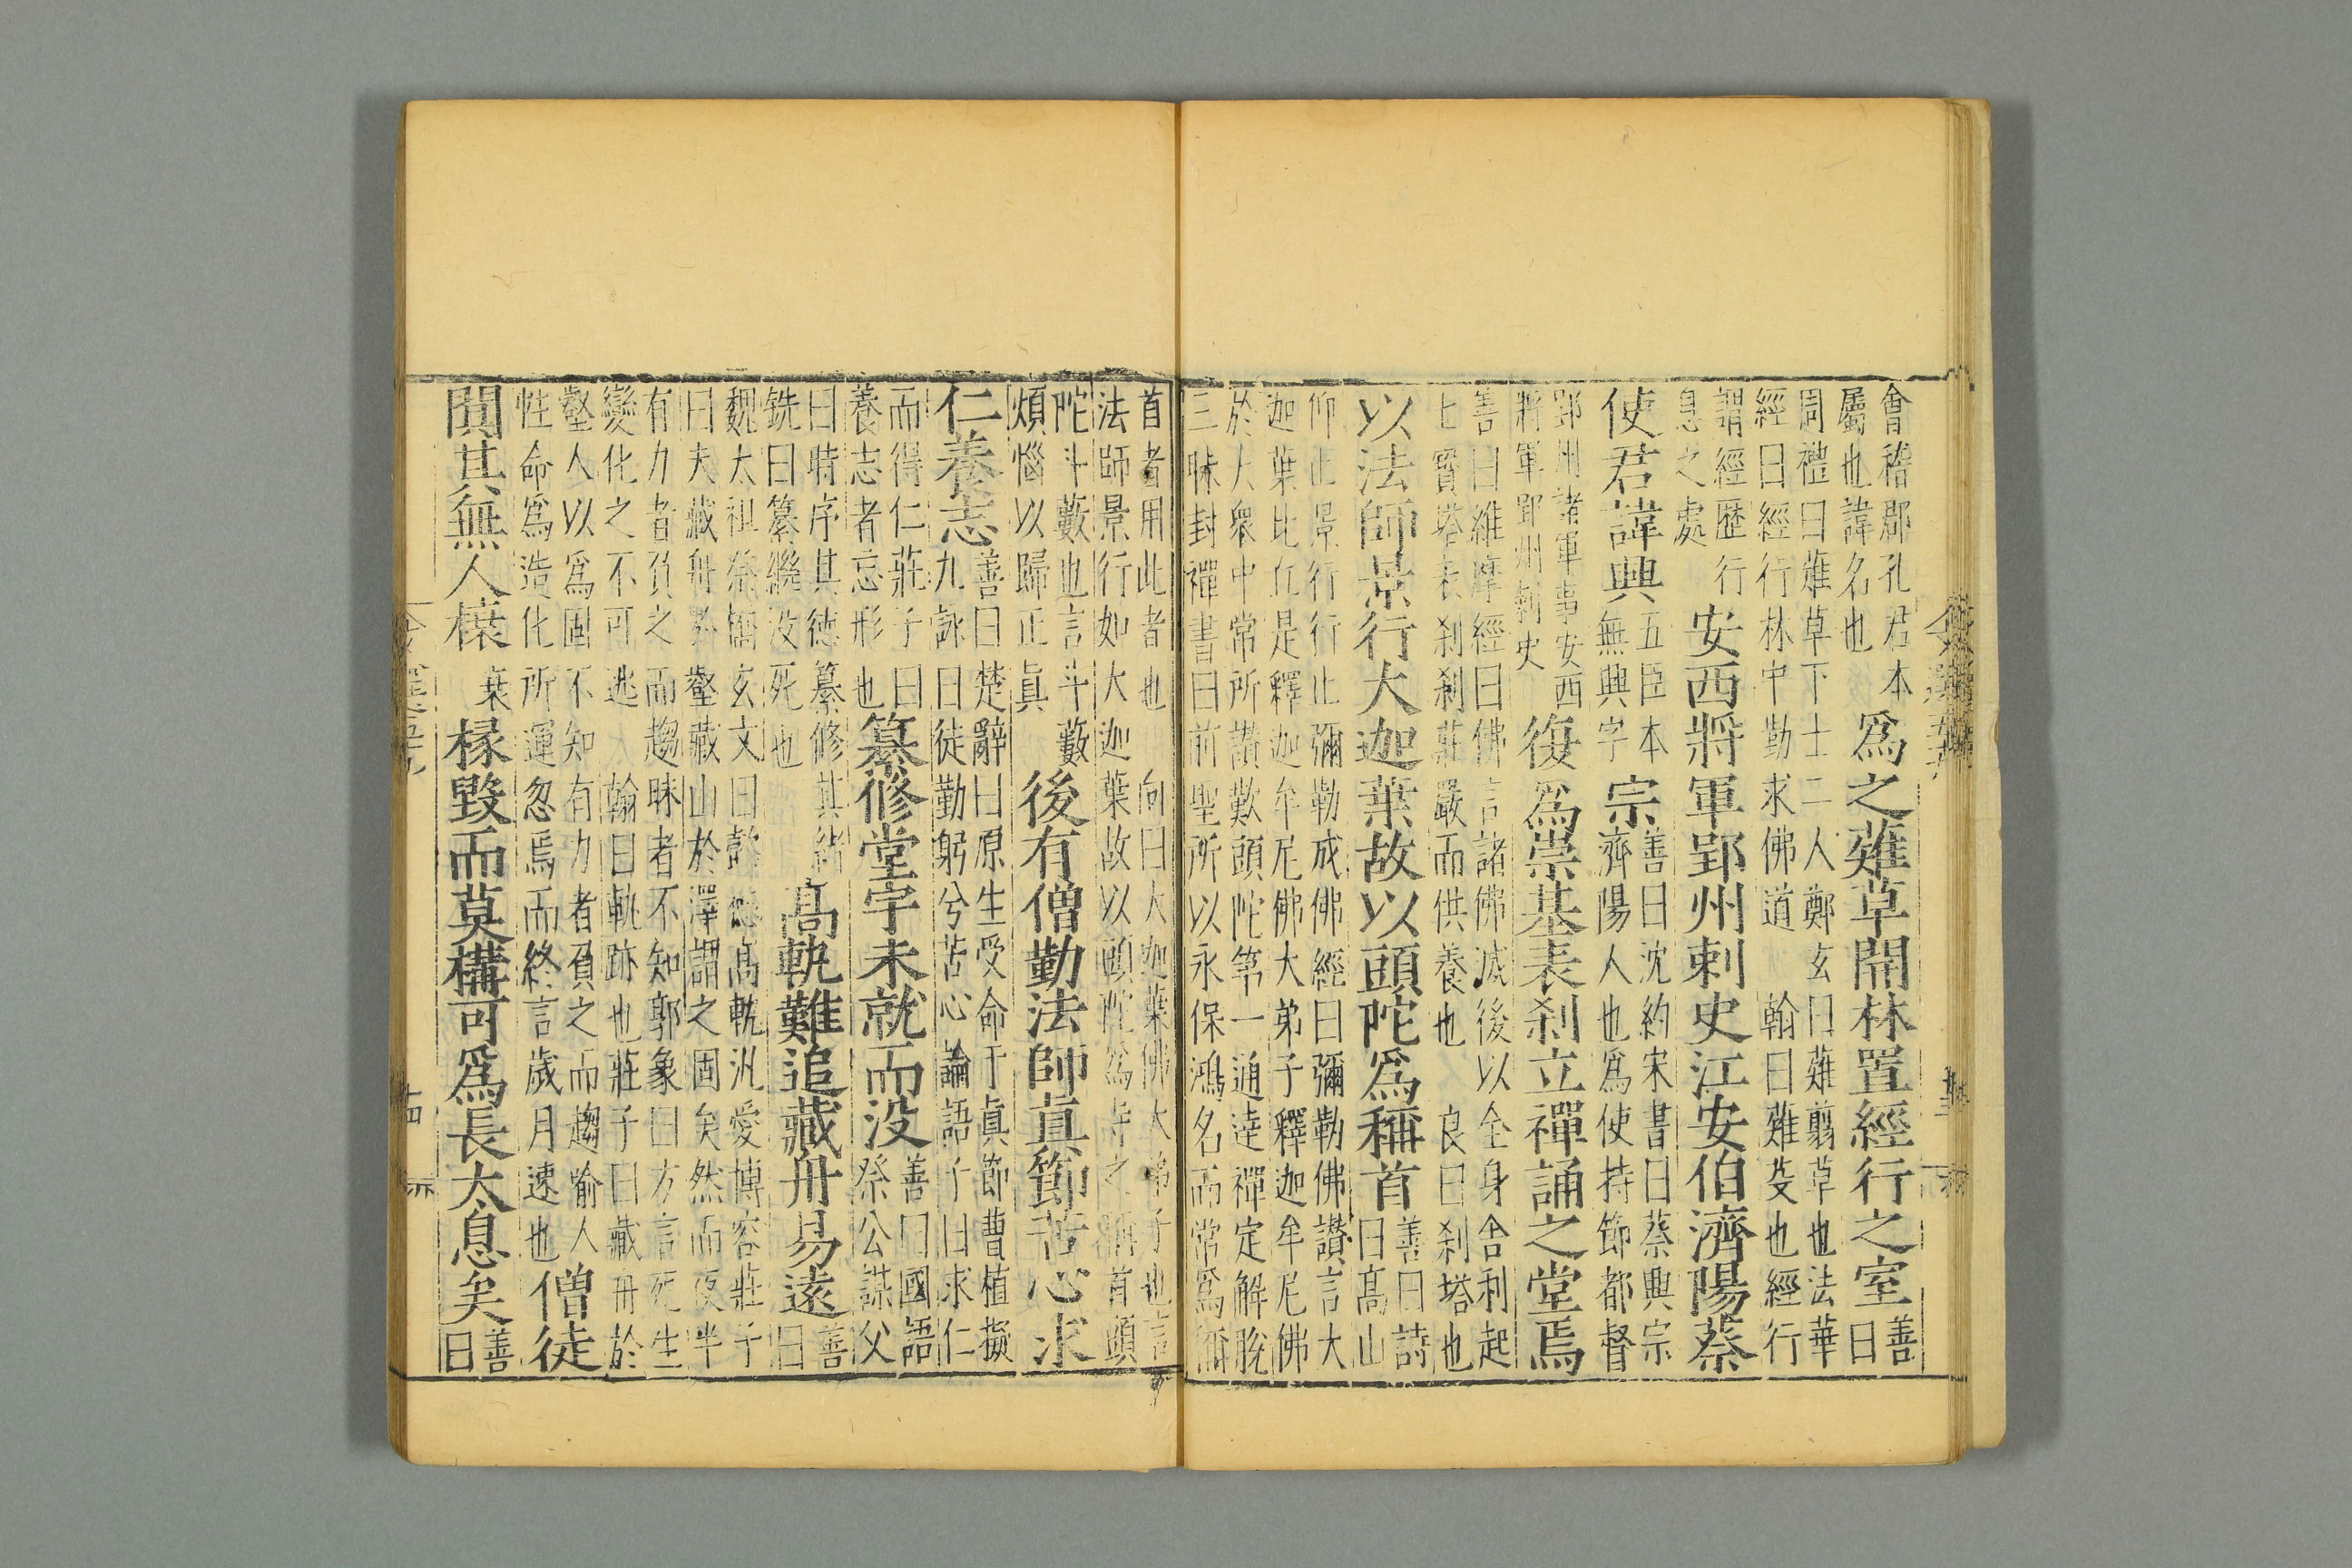 會稽郡孔君本
屬也諱名也
爲之薙草開林置經行之室
善
曰
周禮曰薙草下士二人鄭玄曰薙翦草也法華
經曰經行林中勤求佛道 翰曰薙芟也經行
謂經歷行
息之處
安西將軍郢州刺史江安伯濟陽蔡
使君諱興
五臣本
無興字
宗
善曰沈約宋書曰蔡興宗
濟陽人也爲使持節都督
郢州諸軍事安西
將軍郢州刺史
復爲崇基表刹立禪誦之堂焉
善曰維摩經曰佛言諸佛滅後以全身舍利起
七寳塔表刹刹莊嚴而供養也 良曰刹塔也
以法師景行大迦葉故以頭陀爲稱首
善曰詩
曰髙山
仰止景行行止彌勒成佛經曰彌勒佛讃言大
迦葉比丘是釋迦牟尼佛大弟子釋迦牟尼佛
於大衆中常所讃歎頭陀第一通達禪定解脫
三昧封禪書曰前聖所以永保鴻名而常爲稱
首者用此者也 向曰大迦葉佛大弟子也言
法師景行如大迦葉故以頭陀爲寺之稱首頭
陀斗藪也言斗藪
煩惱以歸正眞
後有僧勤法師貞節苦心求
仁養志
善曰楚辭曰原生受命于貞節曹植擬
九詠曰徒勤躬兮苦心論語子曰求仁
而得仁莊子曰
養志者忘形也
纂修堂宇未就而没
善曰國語
祭公謀父
曰時序其德纂修其緒
銑曰纂繼没死也
髙軌難追藏舟易遠
善
曰
魏太祖祭橋玄文曰懿德髙軌汎愛博容莊子
曰夫藏舟於壑藏山於澤謂之固矣然而夜半
有力者負之而趨昧者不知郭象曰方言死生
變化之不可逃 翰曰軌跡也莊子曰藏舟於
壑人以爲固不知有力者負之而趨喻人
性命爲造化所運忽焉而終言歲月速也
僧徒
闃其無人榱
衰
椽毀而莫構可爲長太息矣
善
曰